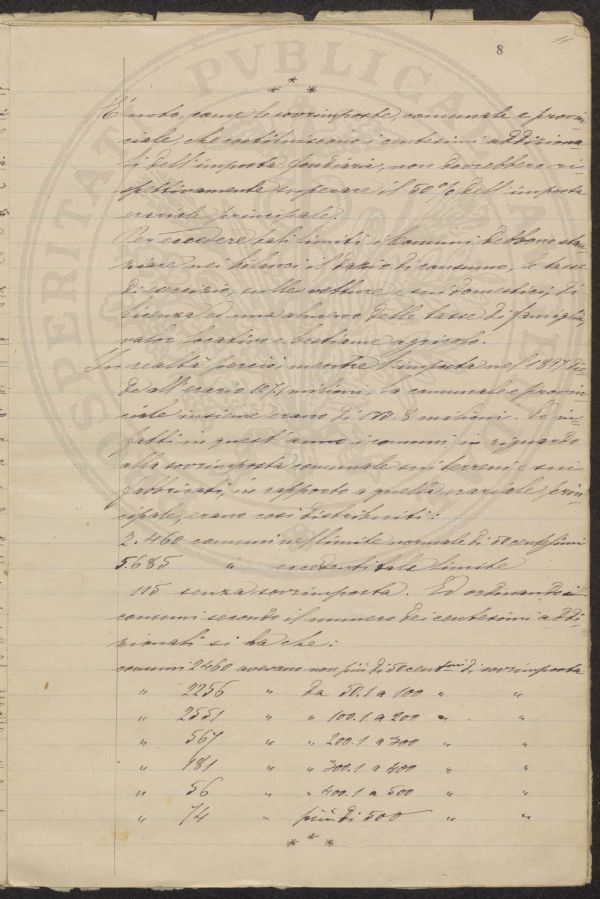 8
* * *
È noto, come le sovrimposte, comunale e provin-
ciale, che costituiscono i centesimi addiziona
li dell'imposta fondiaria, non dovrebbero ri-
spettivamente superare il 50% dell'imposta
erariale principale.
Per eccedere tali limiti i Comuni debbono stan-
ziare nei bilanci il dazio di consumo, le tasse
di esercizio, sulle vetture e sui domestici, di
licenza ed una almeno delle tasse di famiglia,
valor locativo e bestiame agricolo.
In realtà perciò, mentre l'imposta nel 1897 die-
de all'erario milioni, la comunale e provin
ciale insieme erano di 173.8 milioni. Ed in-
fatti in quest'anno i comuni in riguardo
alla sovrimposta comunale sui terreni e sui
fabbricati, in rapporto a quella erariale prin-
cipale, erano così distribuiti:
2.460 comuni nel limite normale di 50 centesimi
5.685 " eccedenti tale limite
115 senza sovrimposta. Ed ordinando i
comuni secondo il numero dei centesimi addi-
zionali si ha che:
comuni 2460 avevano non più di 50 centesimi di sovrimposta
" 2256 " da 50.1 a 100 " "
" 2551 " " 100.1 a 200 " "
" 567 " " 200.1 a 300 " "
" 181 " " 300.1 a 400 " "
" 56 " " 400.1 a 500 " "
" 74 " più di 500 " "
* * *
PROSPERITATI PVBLICAE